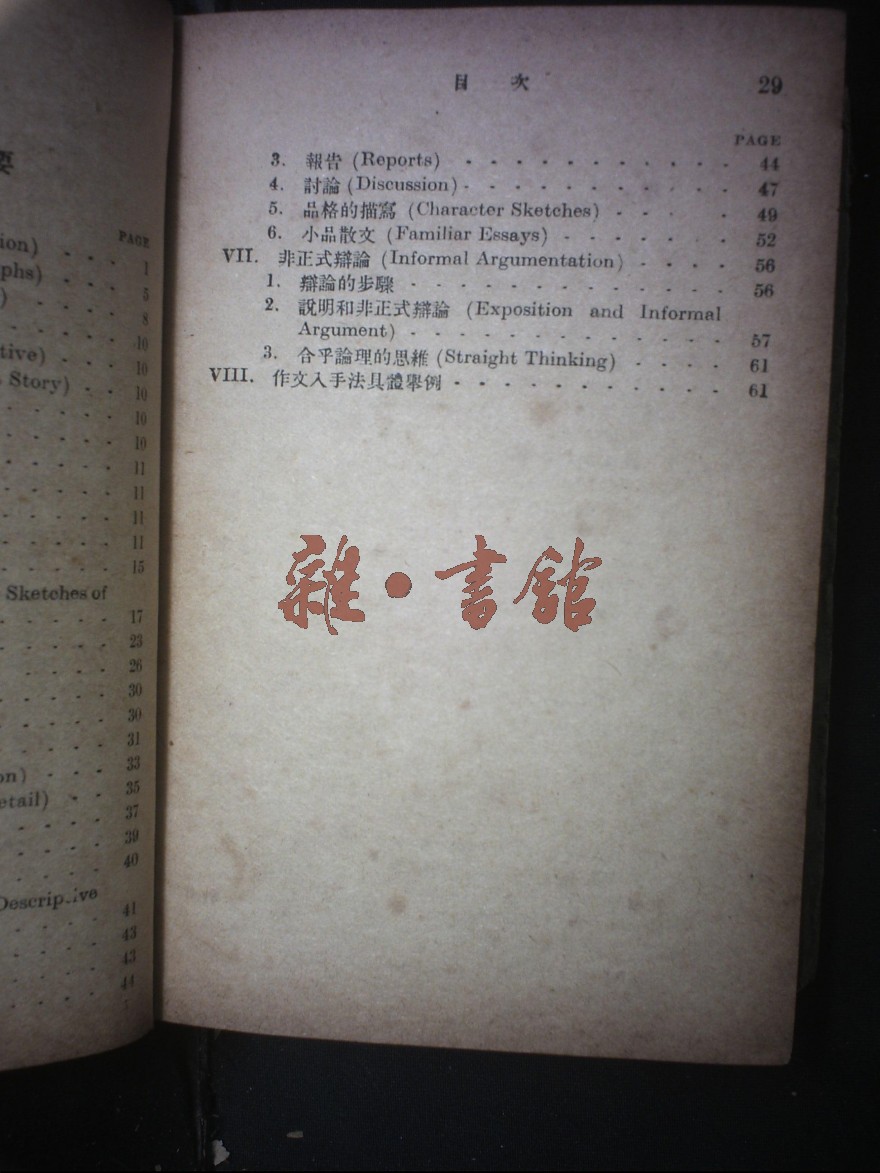 要
PAGE
ion) 1
phs) 5
) 8
10
tive) 10
Story) 10
10
10
11
11
11
11
15
Sketches of
17
23
26
30
30
31
on) 33
etail) 35
37
39
40
Descriptive
41
43
43
44
目 次 29
PAGE
3. 報告 (Reports) 44
4. 討論 (Discussion) 47
5. 品格的描寫 (Character Sketches) 49
6. 小品散文 (Familiar Essays) 52
VII. 非正式辯論 (Informal Argumentation) 56
1. 辯論的步驟 56
2. 說明和非正式辯論 (Exposition and Informal
Argument) 57
3. 合乎論理的思維 (Straight Thinking) 61
VIII. 作文入手法具體舉例 61
雜·書館